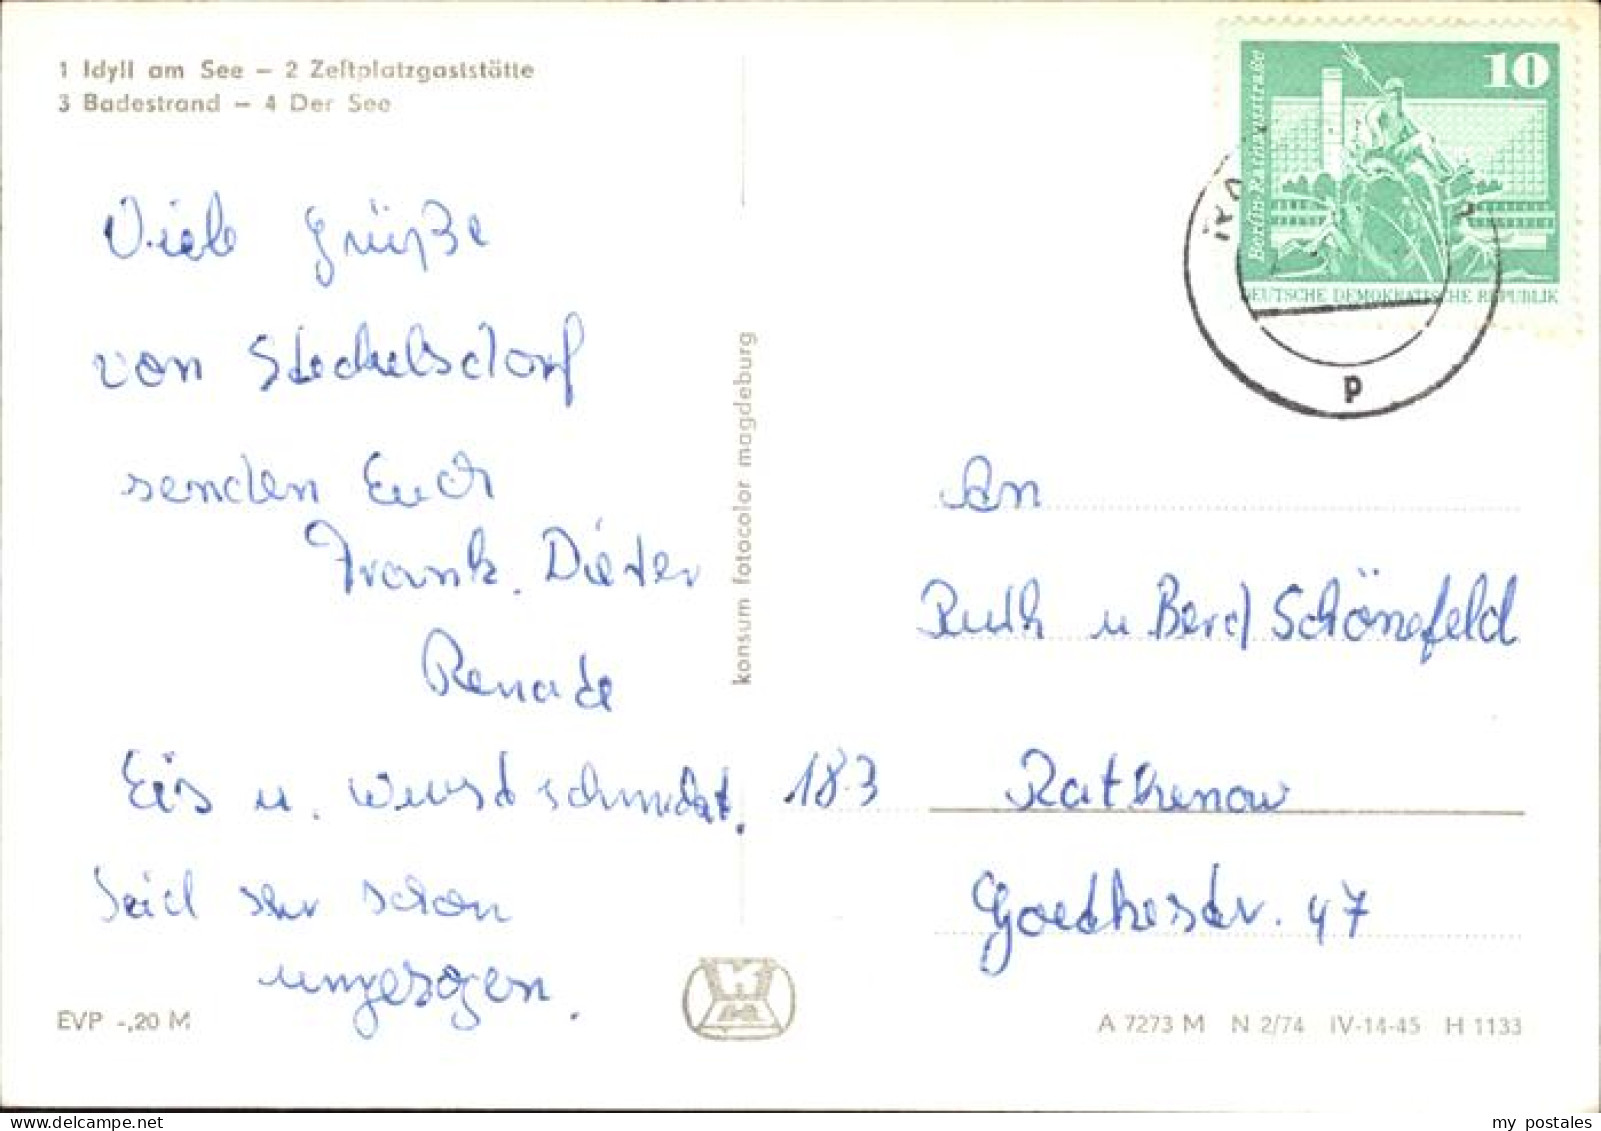 1 Idyll am See – 2 Zeltplatzgaststätte
3 Badestrand – 4 Der See
Viele Grüße
von Steckelsdorf
senden Euch
Frank. Dieter
Renate
Eis u. Wurst schmeckt.
Seid sehr schön
ungezogen.
EVP -,20 M
konsum fotocolor magdeburg
10
Berlin-Rathausstraße
DEUTSCHE DEMOKRATISCHE REPUBLIK
p
An
Ruth u Bernd Schönefeld
183 Rathenow
Goethestr. 47
A 7273 M N 2/74 IV-14-45 H 1133
my postales